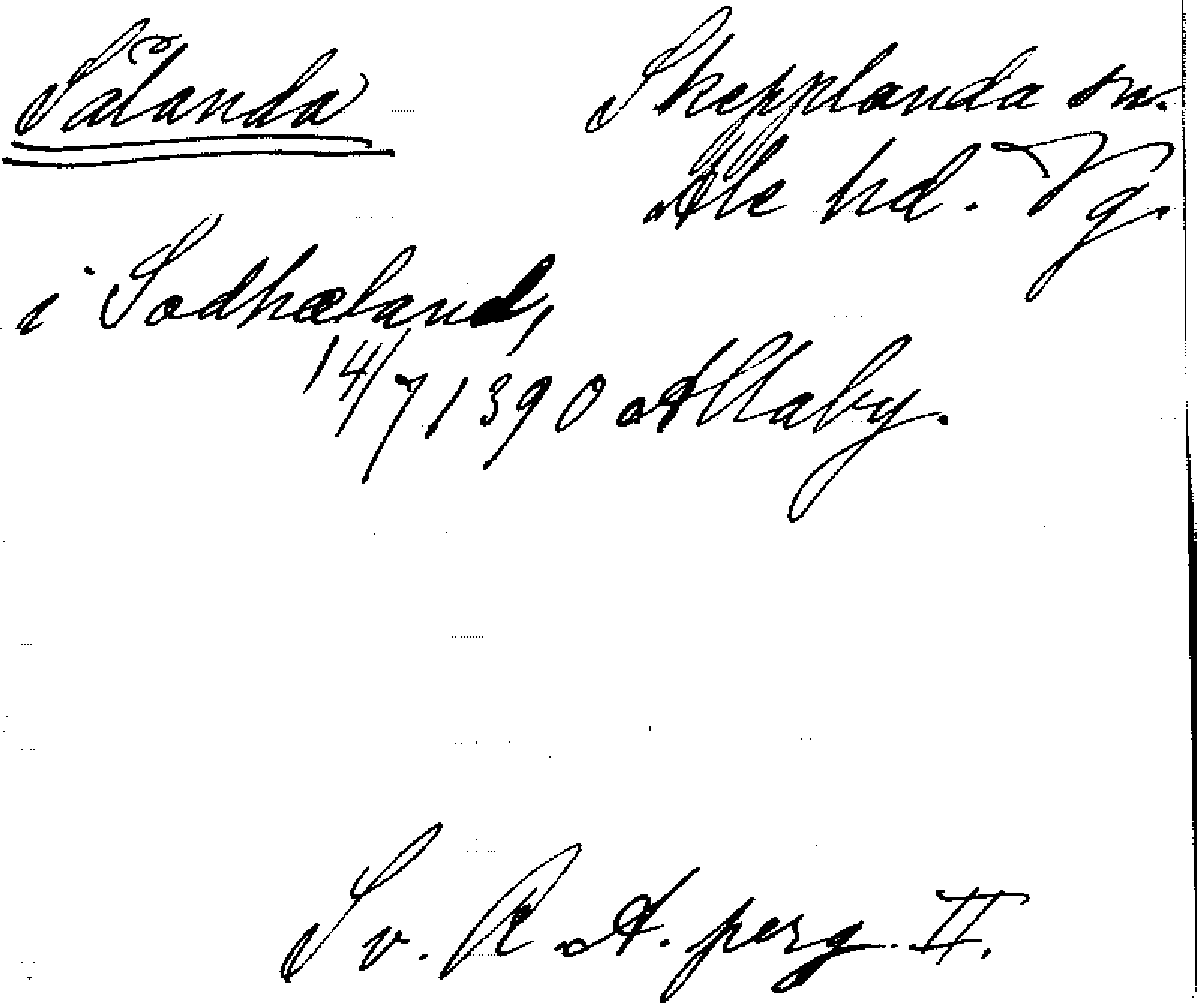 Sålanda
Skepplanda sn.
Ale hd. Vg.
i Sodhæland,
14/7 1390 Allaby.
Sv. R.A. perg. II.